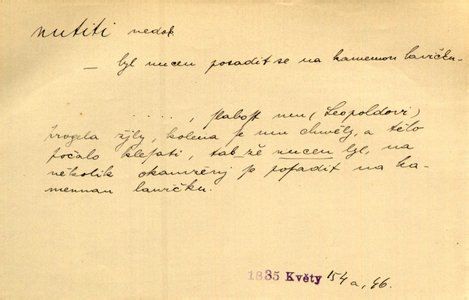 nutiti nedok
— byl nucen posaditi se na kamennou lavičku.
. . . . . . , slabost mu (Leopoldovi)
žíly, kolena se mu chvěly, a tělo
počalo klesati, tak že nucen byl, na
několik okamžený se posadit na ka-
mennau lavičku.
1835 Květy 154 a, 46.